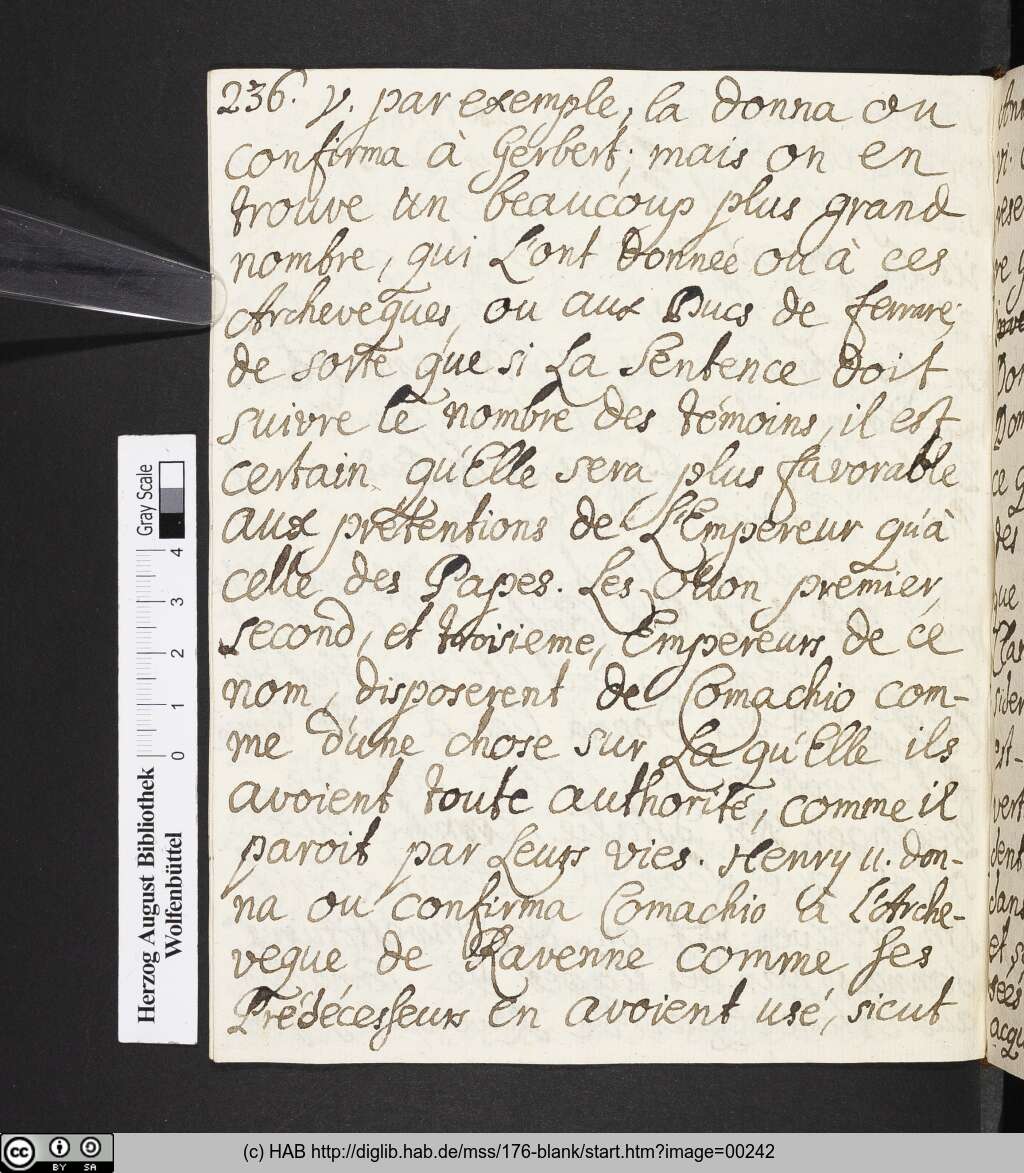 236. V. par exemple, la donna ou
confirma à Gerbert; mais on en
trouve un beaucoup plus grand
nombre, qui L'ont donneé ou à ces
Archeveques, ou aux Ducs de ferrare;
de sorte que si La Sentence doit
suivre le nombre des témoins, il est
certain qu'Elle sera plus favorable
aux prétentions de L'Empereur qu'à
celle des Papes. Les Otton premier,
second, et troisieme, Empereurs de ce
nom, disposerent de Comachio com-
me d'une chose sur La qu'Elle ils
avoient toute authorité, comme il
paroit par Leurs vies. Henry II. don-
na ou confirma Comachio à L'Arche-
veque de Ravenne comme ses
Prédécesseurs en avoient usé, sicut
Gray Scale
0 1 2 3 4
Herzog August Bibliothek
Wolfenbüttel
cc BY SA
(c) HAB http://diglib.hab.de/mss/176-blank/start.htm?image=00242